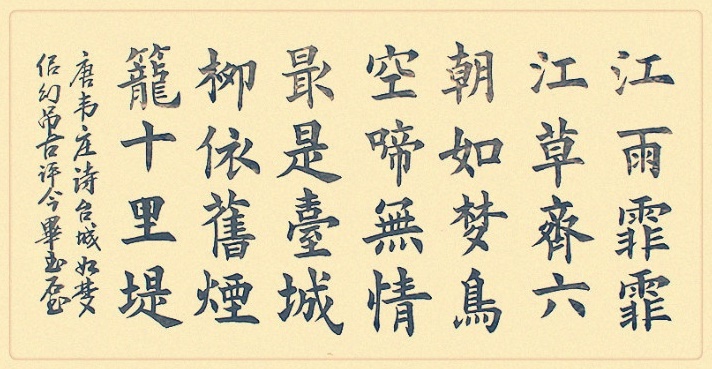 江雨霏霏
江草齊六
朝如梦鳥
空啼無情
最是臺城
柳依舊煙
籠十里堤
唐韦庄诗台城如梦
佀幻吊古评今畢玉